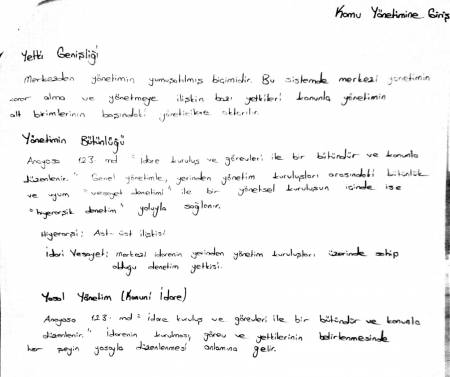 Kamu Yönetimine Giriş
Yetki Genişliği
Merkezden yönetimin yumuşatılmış biçimidir. Bu sistemde merkezi yönetimin
karar alma ve yönetmeye ilişkin bazı yetkileri kanunla yönetimin
alt birimlerinin başındaki yöneticilere aktarılır.
Yönetimin Bütünlüğü
Anayasa 123. md " İdare kuruluş ve görevleri ile bir bütündür ve kanunla
düzenlenir." Genel yönetimle, yerinden yönetim kuruluşları arasındaki bütünlük
ve uyum "vesayet denetimi" ile bir yönetsel kuruluşun içinde ise
"hiyerarşik denetim" yoluyla sağlanır.
Hiyerarşi: Ast-üst ilişkisi
İdari Vesayet: Merkezi idarenin yerinden yönetim kuruluşları üzerinde sahip
olduğu denetim yetkisi.
Yasal Yönetim (Kanuni İdare)
Anayasa 123. md " idare kuruluş ve görevleri ile bir bütündür ve kanunla
düzenlenir." İdarenin kurulması, görev ve yetkilerinin belirlenmesinde
her şeyin yasayla düzenlenmesi anlamına gelir.